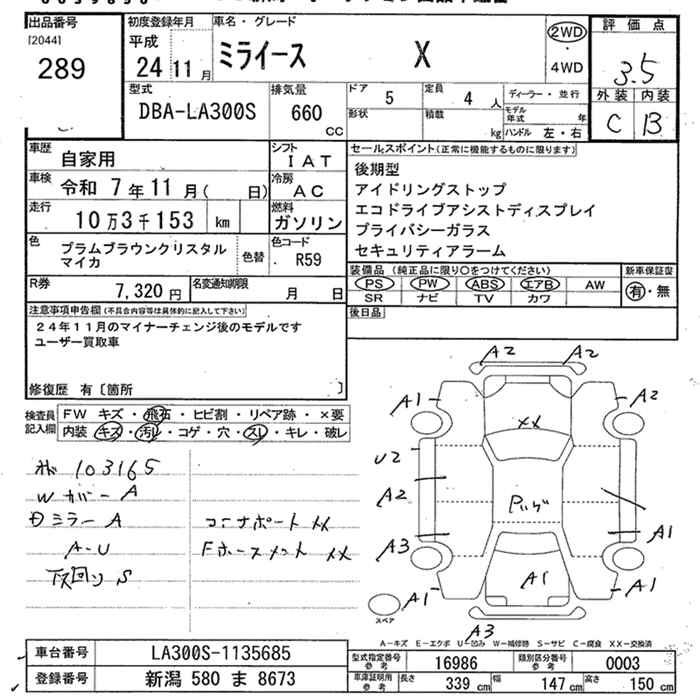 出品番号
[2044]
289
初度登録年月
平成
24 11 月
車名・グレード
ミライース X
2WD
・
4WD
評価点
3.5
外装 内装
C B
型式
DBA-LA300S
排気量
660
CC
ドア
5
形状
定員
4 人
積載
kg
ディーラー・並行
モデル年式 年
ハンドル 左・右
車歴 自家用
シフト IAT
車検 令和 7年11月( 日)
冷房 AC
走行 10万3千153 km
燃料 ガソリン
色 プラムブラウンクリスタル
マイカ
色替
色コード R59
R券 7,320円
名変通知期限 月 日
セールスポイント(正常に機能するものに限ります)
後期型
アイドリングストップ
エコドライブアシストディスプレイ
プライバシーガラス
セキュリティアラーム
装備品(純正品に限り○をつけてください) 新車保証書
PS PW ABS エアB AW
SR ナビ TV カワ
有・無
後日品
注意事項申告欄(不具合内容等は具体的に記入して下さい)
24年11月のマイナーチェンジ後のモデルです
ユーザー買取車
修復歴 有〔箇所 〕
検査員記入欄
FW キズ・飛石・ヒビ割・リペア跡・×要
内装 キズ・汚レ・コゲ・穴・スレ・キレ・破レ
103165
Wカバー A
ミラー A
A-U
下回り S
コーナポート XX
Fホースメント XX
A2 A2
A1 A2
XX
U2
A2
A3 A1
A1
A1 A1
A3
スペア
A-キズ E-エクボ U-凹み W-補修跡 S-サビ C-腐食 XX-交換済
車台番号 LA300S-1135685
登録番号 新潟 580 ま 8673
型式指定番号 参考 16986
類別区分番号 参考 0003
車庫証明用 参考 長さ 339 cm 幅 147 cm 高さ 150 cm